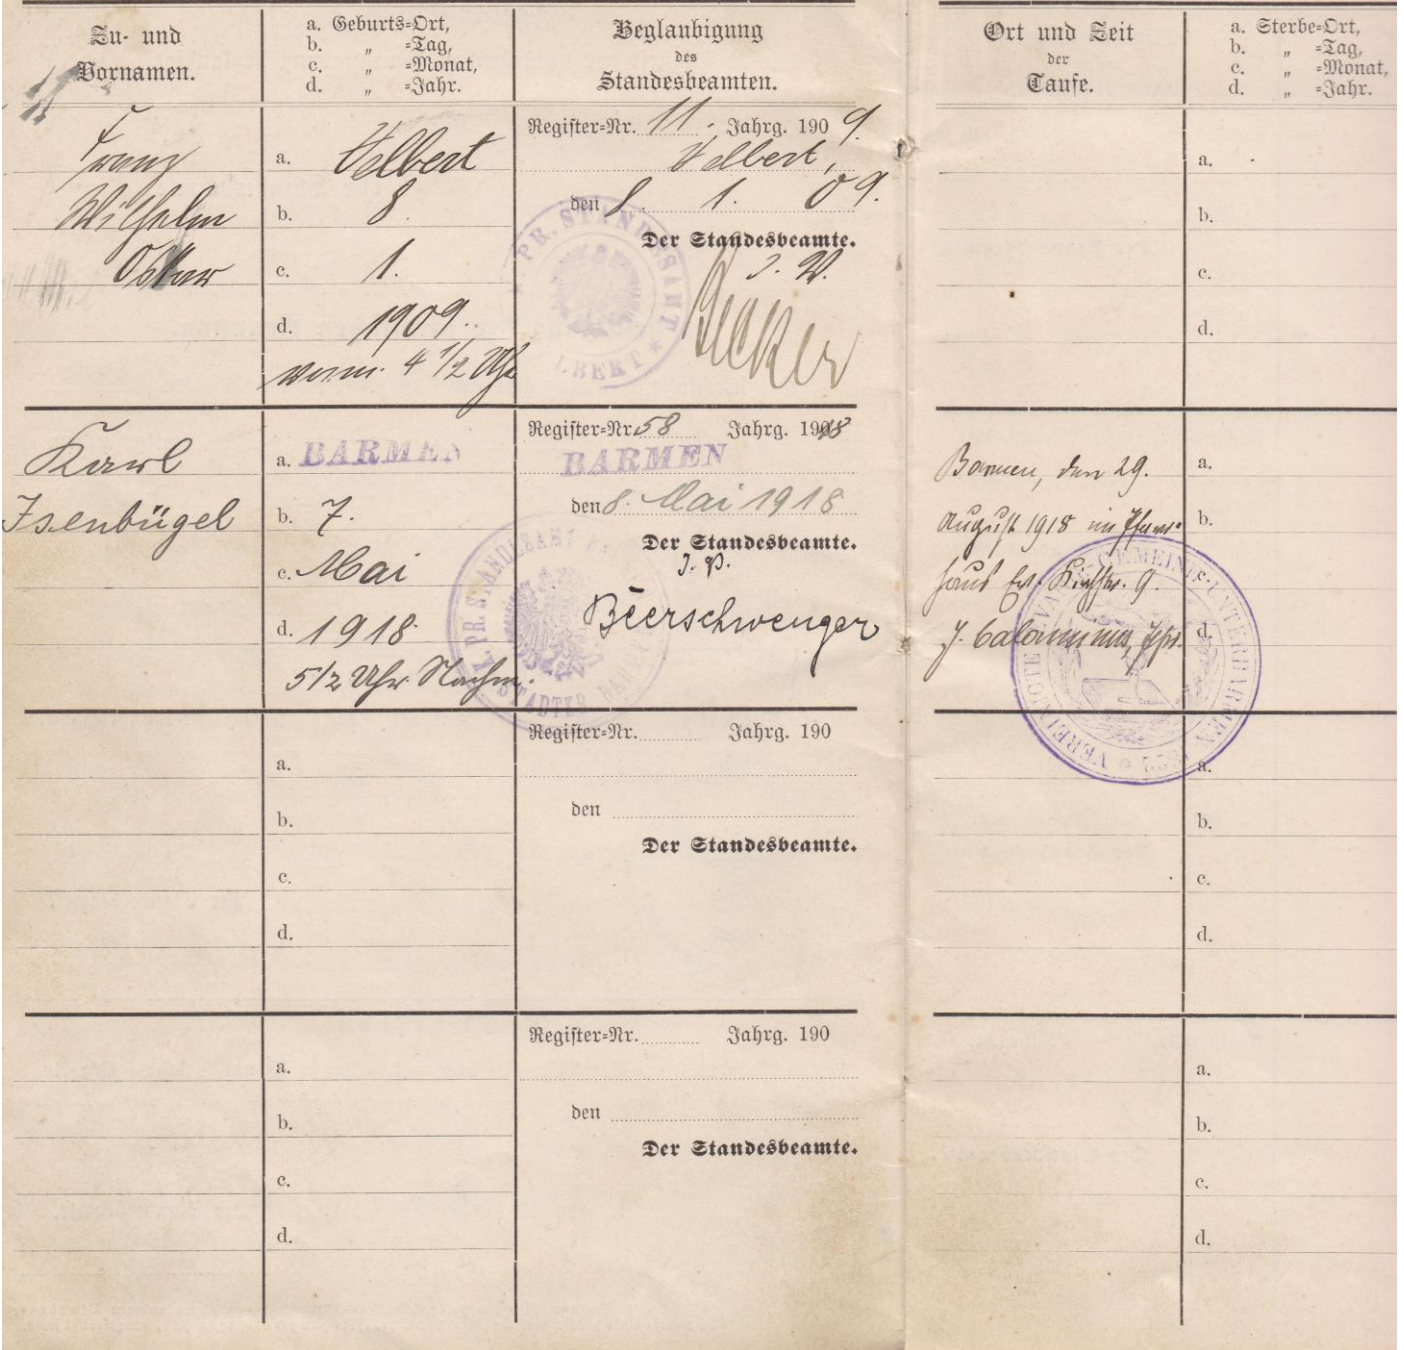 Zu- und
Vornamen.
a. Geburts-Ort,
b. „ -Tag,
c. „ -Monat,
d. „ -Jahr.
Beglaubigung
des
Standesbeamten.
Ort und Zeit
der
Taufe.
a. Sterbe-Ort,
b. „ -Tag,
c. „ -Monat,
d. „ -Jahr.
Franz
Wilhelm
Oskar
a. Velbert
b. 8.
c. 1.
d. 1909.
vorm. 4 1/2 Uhr
Register-Nr. 11. Jahrg. 1909.
Velbert,
den 8. 1. 09.
Der Standesbeamte.
J. V.
Becker
a.
b.
c.
d.
Karl
Isenbügel
a. BARMEN
b. 7.
c. Mai
d. 1918.
5 1/2 Uhr Nachm.
Register-Nr. 58 Jahrg. 1918
BARMEN
den 8. Mai 1918
Der Standesbeamte.
J. V.
Beerschwenger
Barmen, den 29.
August 1918 im Pfarr-
haus Ev. Kirchstr. 9.
a.
b.
d.
a.
b.
c.
d.
Register-Nr. Jahrg. 190
den
Der Standesbeamte.
a.
b.
c.
d.
a.
b.
c.
d.
Register-Nr. Jahrg. 190
den
Der Standesbeamte.
a.
b.
c.
d.